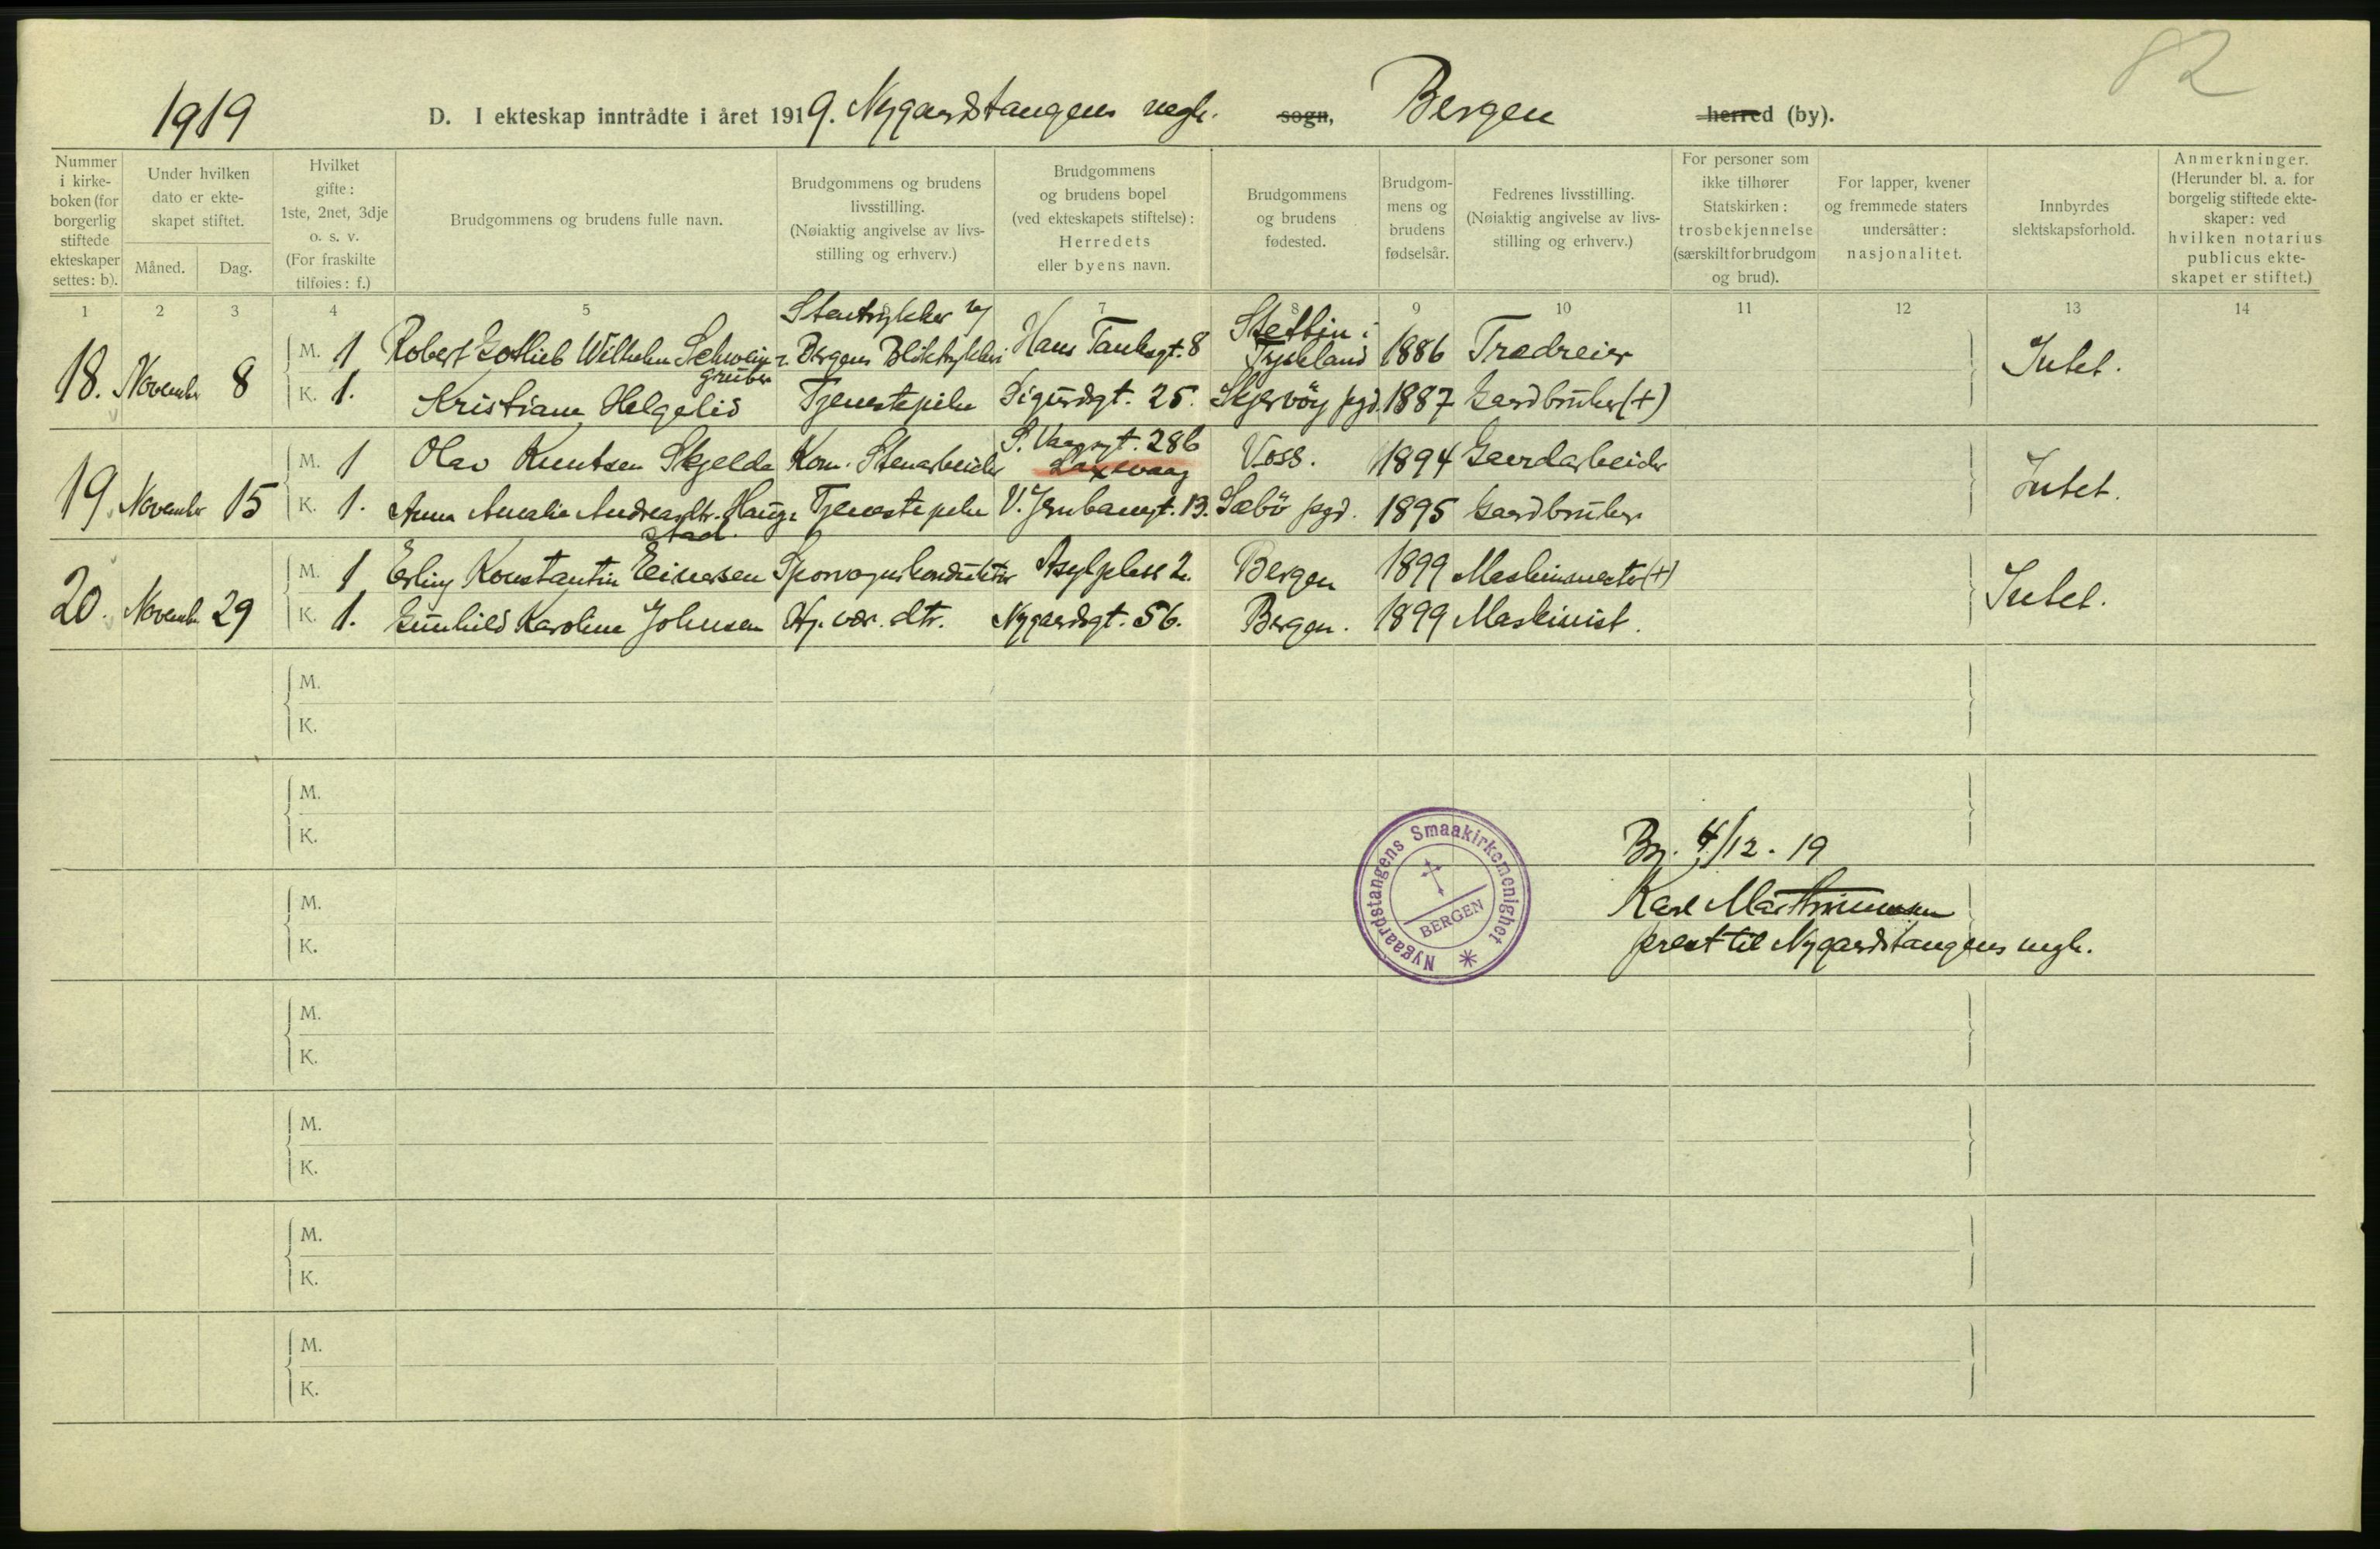 82
1919 D. I ekteskap inntrådte i året 1919. Nygaardstangens mgh. sogn, Bergen herred (by).
Nummer i kirke- boken (for borgerlig stiftede ekteskaper settes: b).
Under hvilken dato er ekte- skapet stiftet.
Måned. Dag.
Hvilket gifte: 1ste, 2net, 3dje o. s. v. (For fraskilte tilføies: f.)
Brudgommens og brudens fulle navn.
Brudgommens og brudens livsstilling. (Nøiaktig angivelse av livs- stilling og erhverv.)
Brudgommens og brudens bopel (ved ekteskapets stiftelse): Herredets eller byens navn.
Brudgommens og brudens fødested.
Brudgom- mens og brudens fødselsår.
Fedrenes livsstilling. (Nøiaktig angivelse av livs- stilling og erhverv.)
For personer som ikke tilhører Statskirken: trosbekjennelse (særskilt for brudgom og brud).
For lapper, kvener og fremmede staters undersåtter: nasjonalitet.
Innbyrdes slektskapsforhold.
Anmerkninger. (Herunder bl. a. for borgelig stiftede ekte- skaper: ved hvilken notarius publicus ekte- skapet er stiftet.)
1 2 3 4 5 6 7 8 9 10 11 12 13 14
18. November 8 M. 1 Robert Gotlieb Wilhelm Schwein- gruber Stentrykker v/ Bergens Bliktrykkeri Hans Tanksgt. 8 Stettin i Tyskland 1886 Trædreier Intet.
K. 1. Kristiane Helgelid Tjenestepike Sigurdsgt. 25. Skjervöy pgd. 1887 Gaardbruker (+)
19. November 15 M. 1 Olav Knutsen Skjelde Kom. Stenarbeider S. Vaagsgt. 28b Laxevaag Voss. 1894 Gaardarbeider Intet.
K. 1. Anna Amalie Andreasdtr. Hauge Tjenestepike V. Jernbanegt. 13. Sæbö pgd. 1895 Gaardbruker
stad.
20. Novemb. 29 M. 1 Erling Konstantin Einersen Sporvognskonduktör Asylplass 2. Bergen 1899 Maskinmester (+) Intet.
K. 1. Gunhild Karoline Johnsen Hj. vær. dtr. Nygaardsgt. 56. Bergen. 1899 Maskinist.
M.
K.
M.
K.
M.
K.
M.
K.
M.
K.
M.
K.
M.
K.
Nygaardstangens Smaakirkemenighet
BERGEN
Bg. 4/12 - 19
Karl Marthinussen
prest til Nygaardstangens mgh.